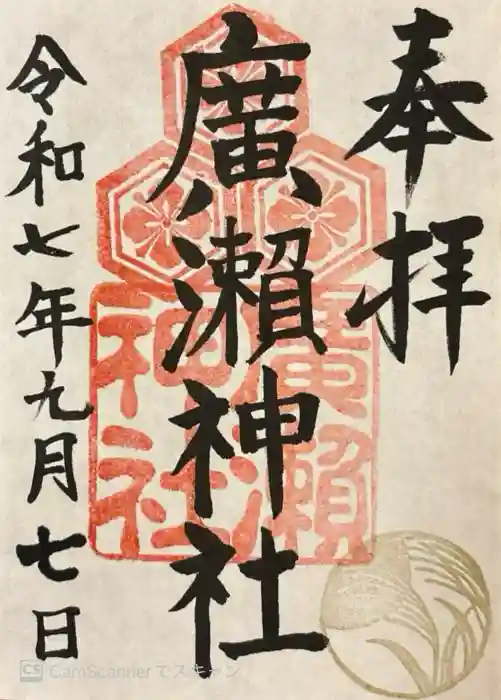 奉拝
廣瀬神社
令和七年九月七日
廣瀬
神社
CS CamScannerでスキャン